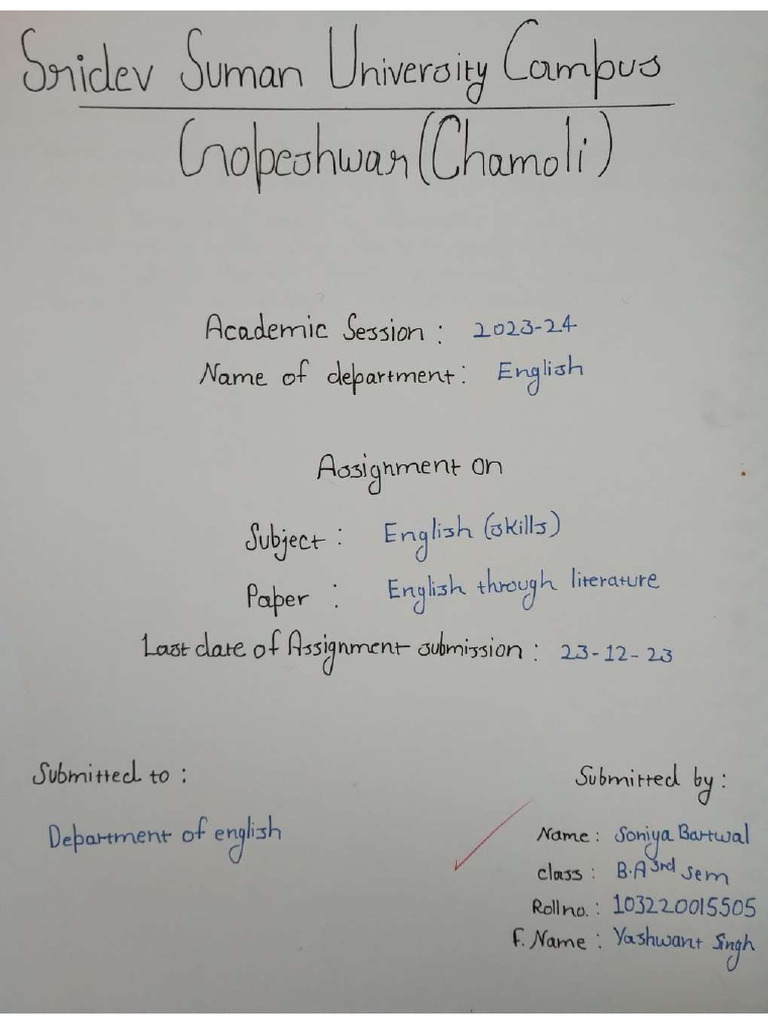 Sridev Suman University Campus
Gopeshwar (Chamoli)
Academic Session : 2023-24
Name of department : English
Assignment on
Subject : English (skills)
Paper : English through literature
Last date of Assignment submission : 23-12-23
Submitted to :
Department of english
Submitted by :
Name : Soniya Bartwal
class : B.A 3rd sem
Roll no. : 103220015505
F. Name : Yashwant Singh